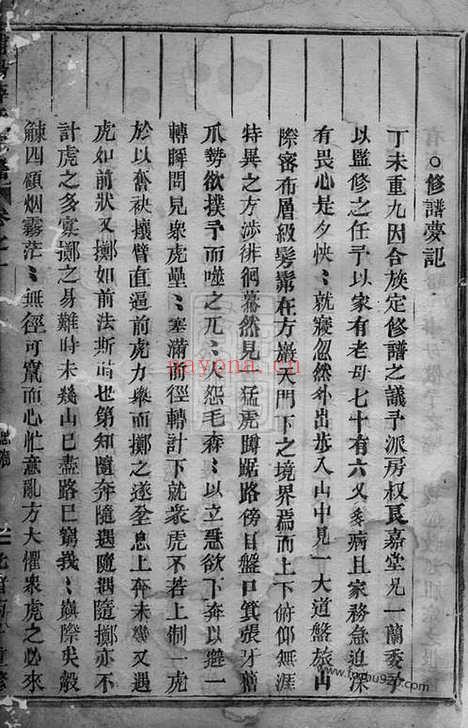 ○修譜夢記
丁未重九因合族定修譜之議予派房叔良嘉堂兄一蘭委予
以監修之任予以家有老母七十有六又多病且家務急迫深
有畏心是夕怏〻就寢忽然外出步入山中見一大道盤旋山
際審布層級髣髴在方巖天門下之境界焉而上下俯仰無涯
特異之方涉徘徊驀然見一猛虎蹲踞路傍目盤口箕張牙舊
爪勢欲撲予而噬之兀〻大怨毛森〻以立急欲下奔以避一
轉瞬間見衆虎壘〻塞滿而徑轉計下就衆虎不若上制一虎
於以奮袂攘臂直逼前虎力舉而擲之遂至息上奔未幾又遇
虎如前狀又擲如前法斯時也第知隨奔隨遇隨遇隨擲亦不
計虎之多寡擲之身難時未幾山已盡路已窮峩〻巔際尖殼
觫四顧烟霧茫〻無徑可竄而心忙意亂方大懼衆虎之必來
卷之一
nayona.cn